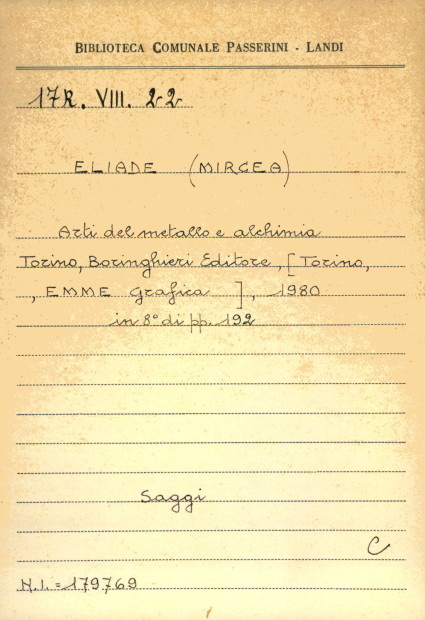 BIBLIOTECA COMUNALE PASSERINI - LANDI
17R. VIII. 22
ELIADE (MIRCEA)
Arti del metallo e alchimia
Torino, Boringhieri Editore, [Torino,
, EMME Grafica ], 1980
in 8° di pp. 192
Saggi
C
N.I. = 179769